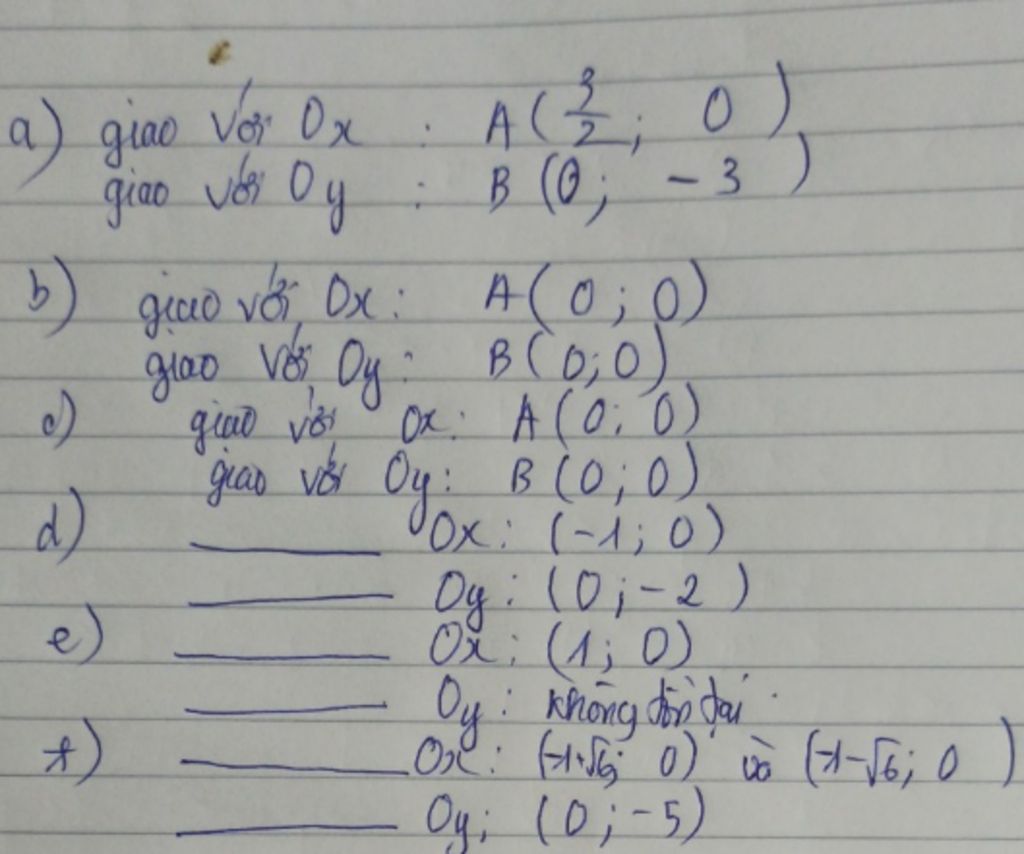 a) giao với Ox : A( 3/2 ; 0 )
giao với Oy : B (0; -3 )
b) giao với Ox : A( 0 ; 0)
giao với Oy : B( 0; 0)
c) giao với Ox : A (0; 0)
giao với Oy : B (0 ; 0)
d) ______ Ox : (-1 ; 0)
______ Oy : (0 ; -2 )
e) ______ Ox : (1 ; 0)
______ Oy : không tồn tại.
f) ______ Ox : (-1+√6; 0) và (-1-√6; 0 )
______ Oy ; (0 ; -5)